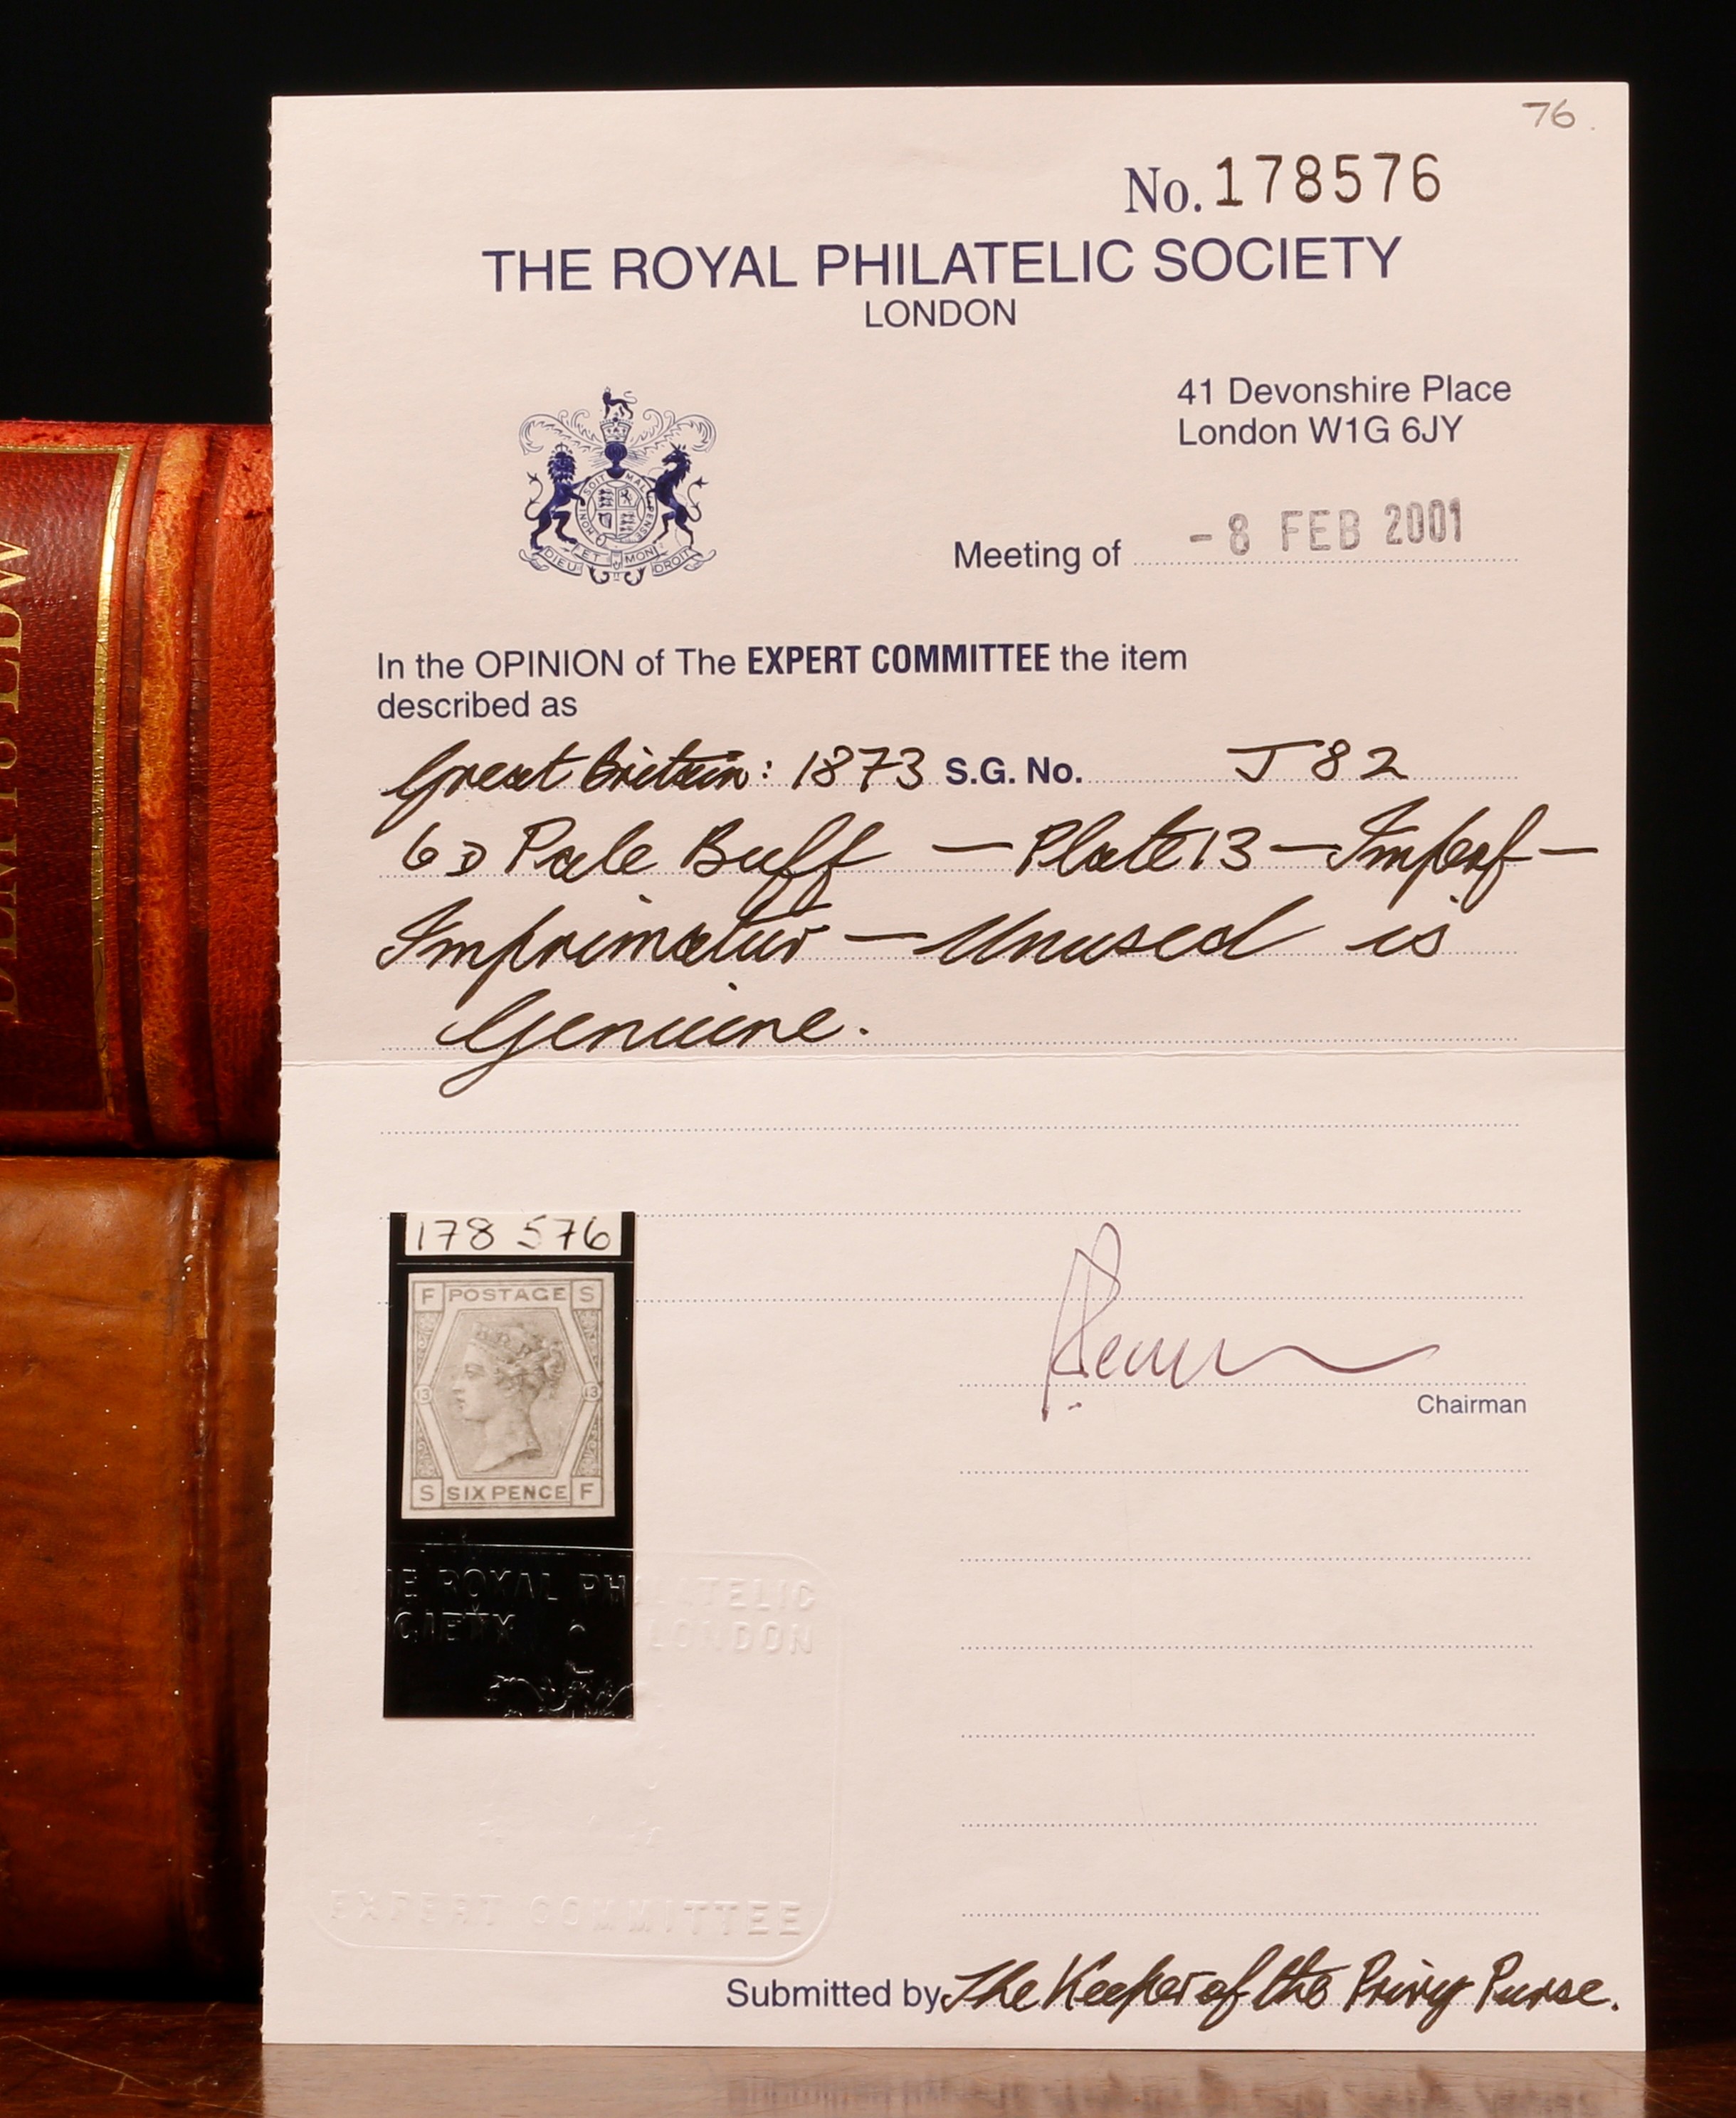 76.
No. 178576
THE ROYAL PHILATELIC SOCIETY
LONDON
41 Devonshire Place
London W1G 6JY
HONI SOIT MAL PENSE
DIEU ET MON DROIT
Meeting of - 8 FEB 2001
In the OPINION of The EXPERT COMMITTEE the item
described as
Great Britain: 1873 S.G. No. J82
6D Pale Buff — Plate 13 — Imperf —
Imprimatur — Unused is
Genuine.
178 576
F POSTAGE S
13 13
S SIX PENCE F
Chairman
E ROYAL PHILATELIC
CIETY LONDON
EXPERT COMMITTEE
Submitted by The Keeper of the Privy Purse.